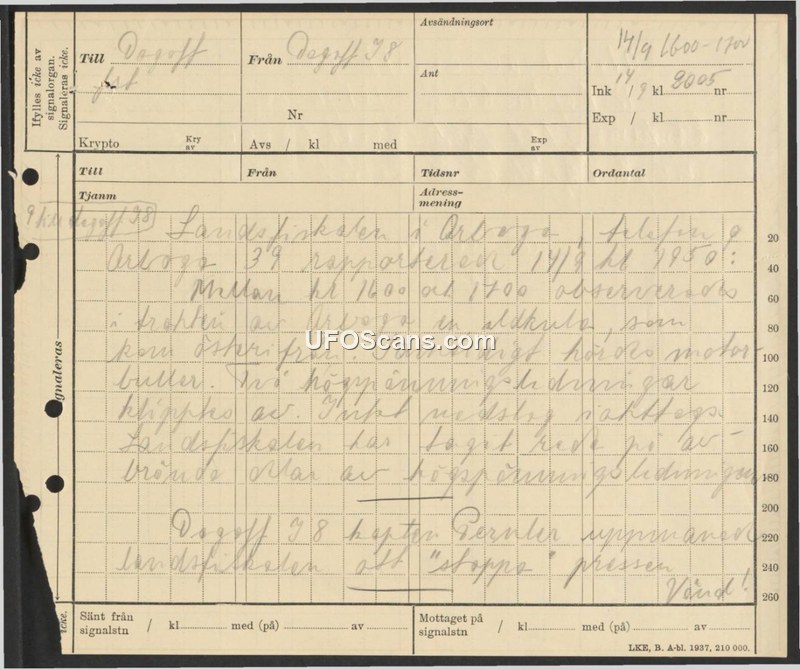 Ifylles icke av
signalorgan.
Signaleras icke.
Till Dagoff
fst
Från Dagoff I 8
Nr
Avsändningsort
Ant
14/9 1600-1700
Ink 14/9 kl 2005 nr
Exp / kl nr
Krypto Kry av
Avs / kl med Exp av
Till Från Tidsnr Ordantal
Tjanm Adress-
mening
dagoff I8
Landsfiskalen i Arboga, telefon
Arboga 39 rapporterade 14/9 kl 1950: 20
Mellan kl 1600 och 1700 observerades 40
i trakten av Arboga en eldkula, som 60
kom österifrån. Samtidigt hördes motor- 80
buller. Två högspänningsledningar 100
klipptes av. Intet nedslag iakttags. 120
Landsfiskalen har tagit reda på av- 140
brända delar av högspänningsledningen 160
180
200
Dagoff I 8 kapten Pernler uppmanade 220
landsfiskalen att "stoppa" pressen 240
Vänd! 260
gnaleras
icke.
Sänt från
signalstn / kl med (på) av
Mottaget på
signalstn / kl med (på) av
LKE, B. A-bl. 1937, 210 000.
UFOScans.com